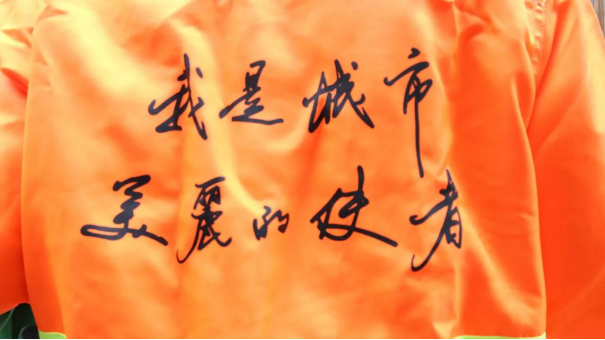 我是城市
美麗的使者